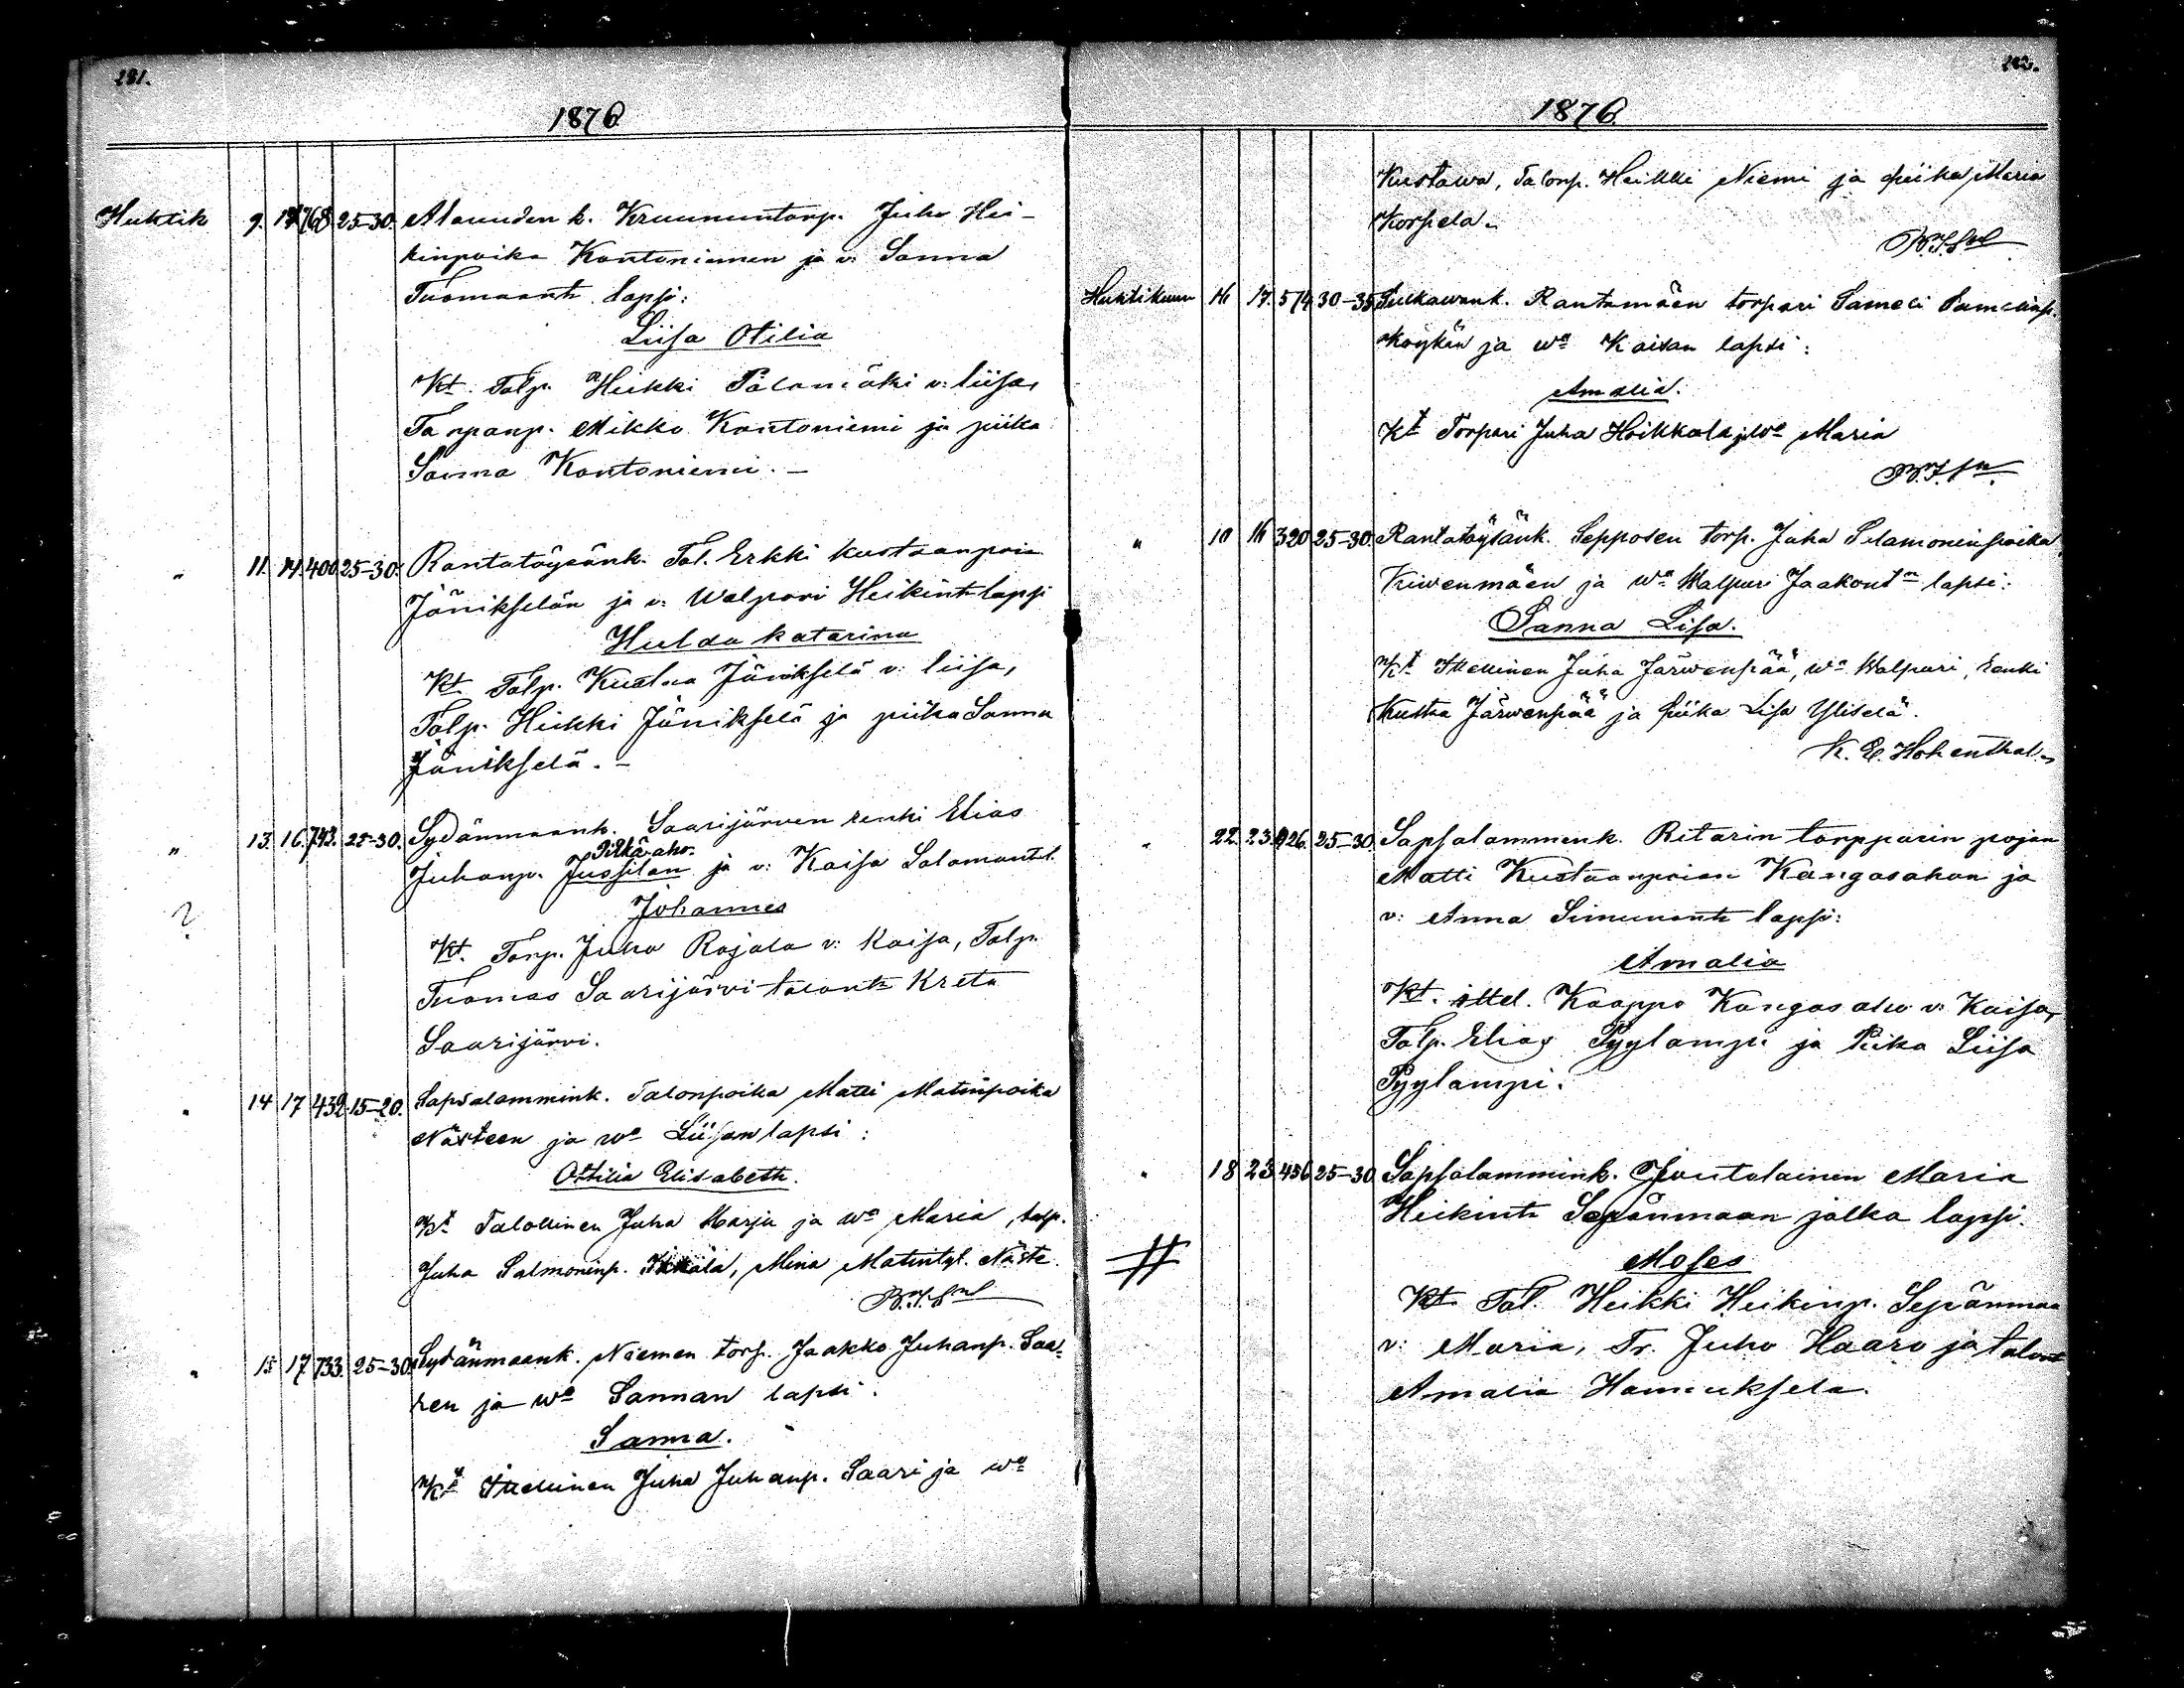 181.
1876
Huhtik 9. 768. 25-30. Alavuden k. Kruununtorp. Juho Hei-
kinpoika Kontoniemen ja v: Sanna
Tuomaant. lapsi:
Liisa Otilia
Kt. Talp. Heikki Palomäki v: Liisa,
Mikko Kontoniemi ja piika
Sanna Kontoniemi. -
" 11. 14. 400. 25-30. Rantatöysänk. Tal. Erkki Kustaanpoia
Jänikselän ja v: Walpori Heikint. lapsi
Hulda Katarina
Kt. Talp. Kustaa Jänikselä v: Liisa,
Talp. Heikki Jänikselä ja piika Sanna
Jänikselä. -
" 13. 16. 743. 25-30. Sydänmaank. Saarijärven renki Elias
Pitkä-aho.
Juhanp. Jussilan ja v: Kaisa Salomont.
?
Johannes
Kt. Torp. Juho Rajala v: Kaisa, Talp.
Tuomas Saarijärvi talont. Kreta
Saarijärvi.
" 14 17 439. 15-20. Sapsalammink. Talonpoika Matti Matinpoika
Nästeen ja wa Liisan lapsi:
Ottilia Elisabeth.
Kt Talollinen Juha Harju ja wa Maria, talp.
Juha Salmoninp. Mina Matintyt. Näste.
" 15 17. 733. 25-30. Sydänmaank. Niemen torp. Jaakko Juhanp. Saa-
ren ja wa Sannan lapsi.
Sanna.
Kt Itellinen Juha Juhanp. Saari ja wa
182.
1876.
Kustawa, Talonp. Heikki Niemi ja piika Maria
Korpela.
Huhtikuun 16 17. 574. 30-35. Tulkawank. Rantamäen torpari Sameli Samelinp.
Köykän ja wa Kaisan lapsi:
Amalia.
Kt Torpari Juha Hoikkala ja wa Maria
" 10 16 320 25-30. Rantatöysänk. Sepposen torp. Juha Salamoninpoika
Kiwenmäen ja wa Walpuri Jaakont lapsi:
Sanna Lisa.
Kt Itellinen Juha Järwenpää, wa Walpuri, Renki
Kustaa Järwenpää ja Piika Lisa Yliselä.
K. E. Hohenthal.
" 22. 23. 926. 25-30. Sapsalammenk. Ritarin torpparin pojan
Matti Kustaanpoian Kangasahon ja
v: Anna Simunant. lapsi:
Amalia
Kt. ittel. Kaappo Kangasaho v: Kaisa,
Talp. Elias Pyylampi ja Piika Liisa
Pyylampi.
" 18 23. 456 25-30 Sapsalammink. Joutolainen Maria
Heikint. Sepänmaan jalka lapsi.
#
Moses
Kt. Tal. Heikki Heikinp. Sepänmaa
v: Maria, Tr. Juho Haaro ja talont
Amalia Hamukselä.